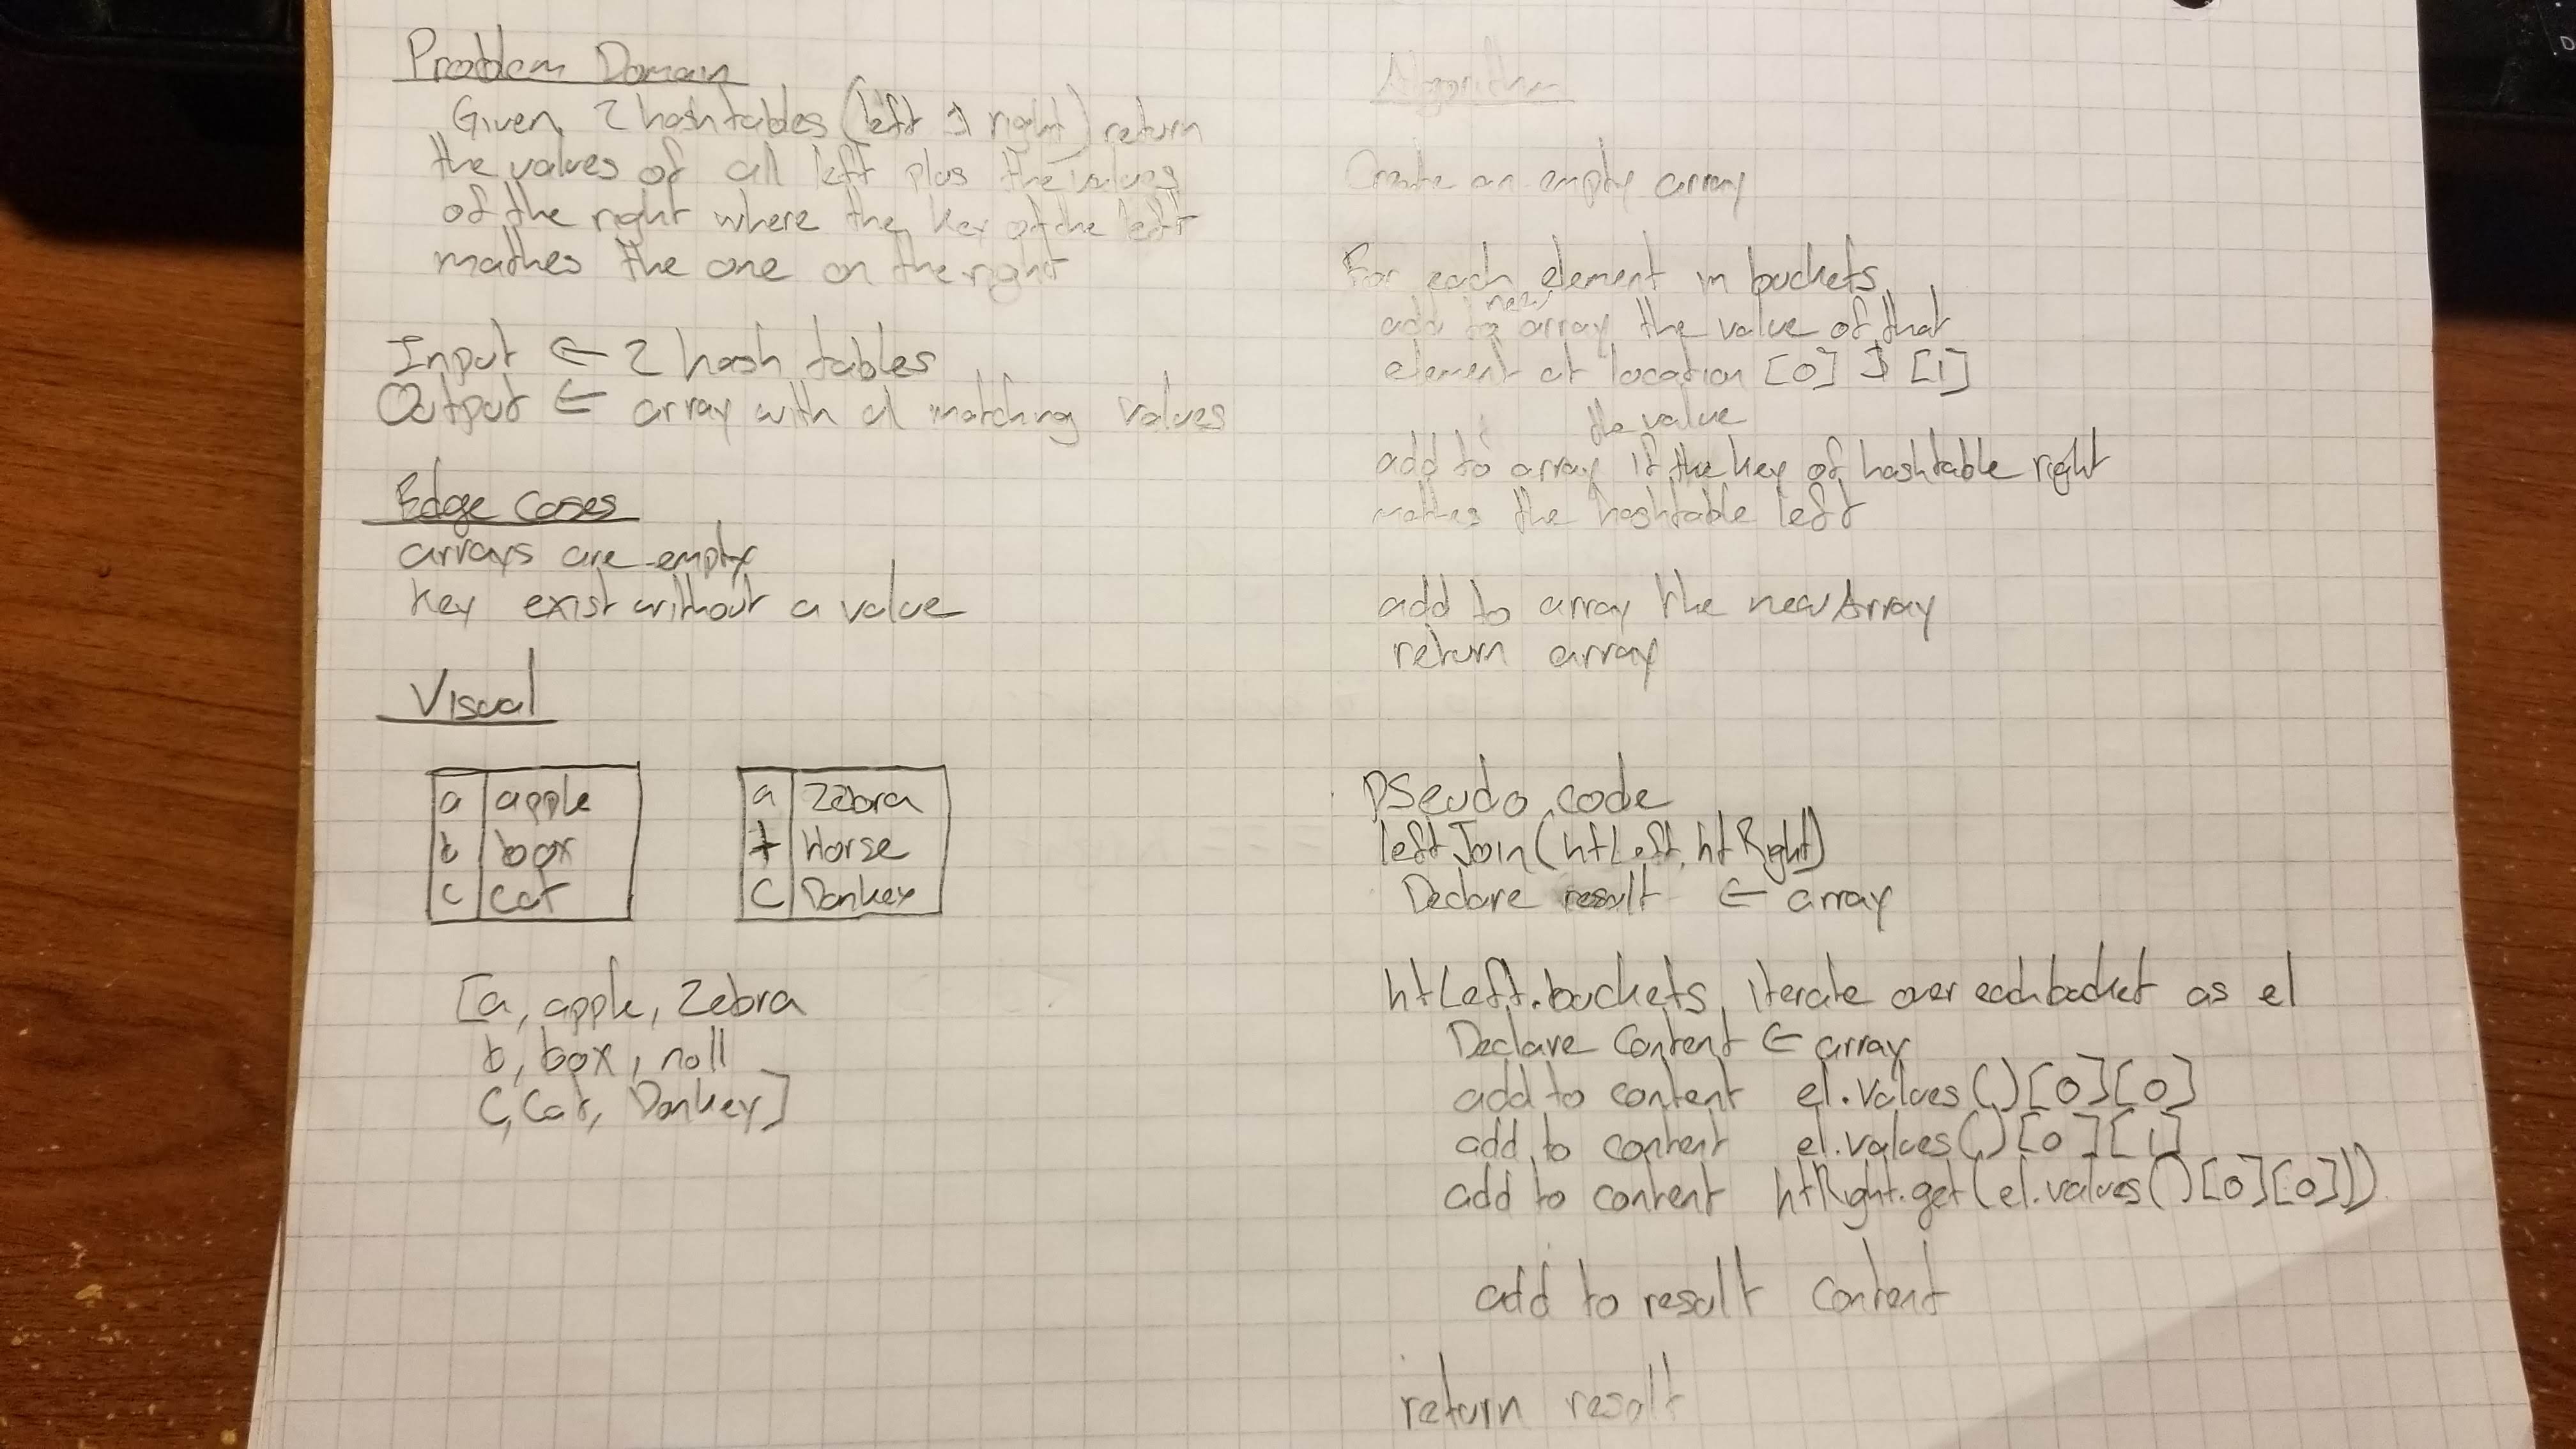 Problem Domain
Given 2 hashtables (left & right) return
the values of all left plus the values
of the right where the key of the left
mathes the one on the right
Input ← 2 hash tables
Output ← array with al matching values
Edge Cases
arrays are empty
Key exist without a value
Visual
a apple
b box
c cat
a Zebra
t Horse
C Donkey
[a, apple, Zebra
b, box, null
C, Cat, Donkey]
Algorithm
Create an empty array
For each element in buckets
new
add to array the value of that
element at location [0] & [1]
the value
add to array if the key of hashtable right
mathes the hashtable left
add to array the newArray
return array
Pseudo code
leftJoin(htLeft, htRight)
Declare result ← array
htLeft.buckets, iterate over each bucket as el
Declare Content ← array
add to content el.values()[0][0]
add to content el.values()[0][1]
add to content htRight.get(el.values()[0][0]))
add to result Content
return result